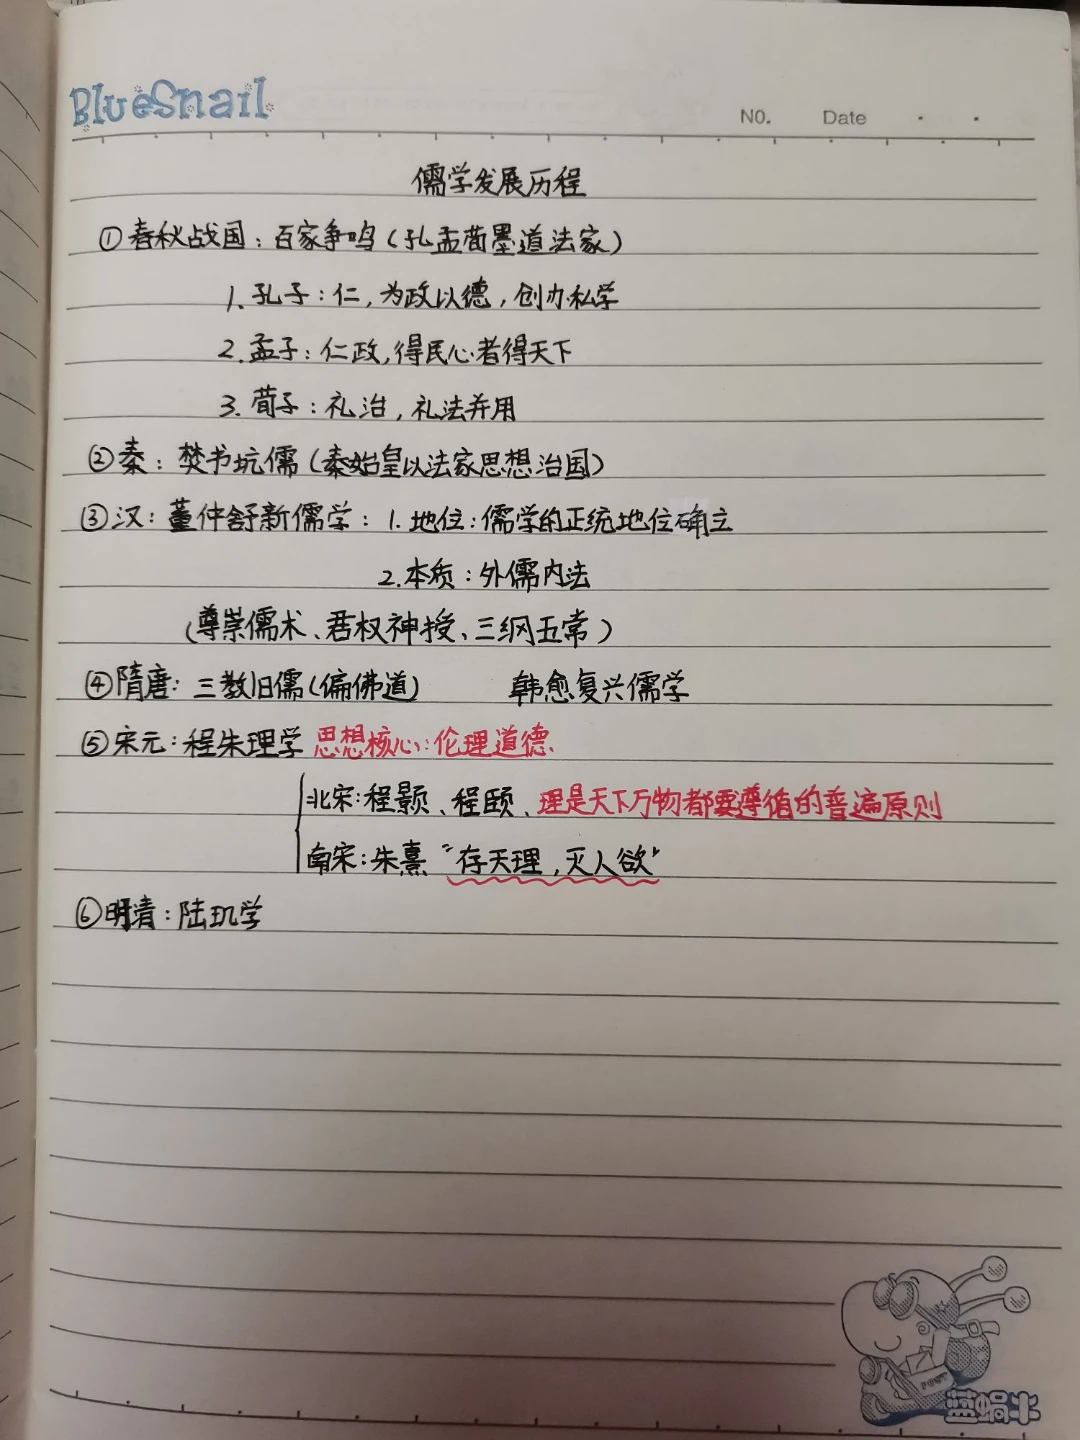 BlueSnail
NO. Date
儒学发展历程
①春秋战国:百家争鸣(孔孟荀墨道法家)
1.孔子:仁,为政以德,创办私学
2.孟子:仁政,得民心者得天下
3.荀子:礼治,礼法并用
②秦:焚书坑儒(秦始皇以法家思想治国)
③汉:董仲舒新儒学:1.地位:儒学的正统地位确立
2.本质:外儒内法
(尊崇儒术、君权神授、三纲五常)
④隋唐:三教归儒(偏佛道) 韩愈复兴儒学
⑤宋元:程朱理学 思想核心:伦理道德.
北宋:程颢、程颐、理是天下万物都要遵循的普遍原则
南宋:朱熹 “存天理,灭人欲”
⑥明清:陆玑学
POST
蓝蜗牛